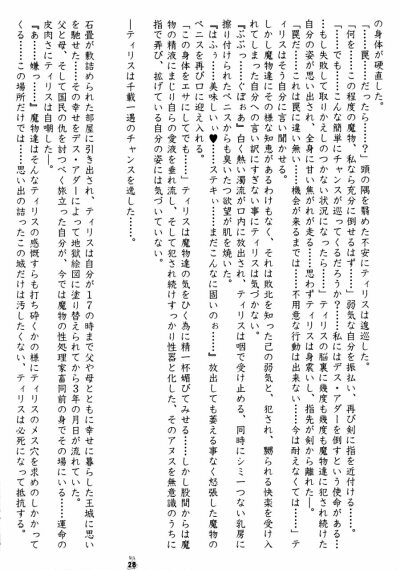 の身体が硬直した。
「……罠……だったら……？」頭の隅を翳めた不安にティリスは逡巡した。
「何を……この程度の魔物、私なら充分に倒せるはず……」弱気な自分を振払い、再び剣に指を近付ける……
「……でも……こんな簡単にチャンスが巡ってくるだろうか？……私にはデス・アダーを倒すという使命がある……
…もし失敗して取りかえしのつかない状況になったら……」ティリスの脳裏に幾度も幾度も魔物達に犯され続けた
自分の姿が思い出され、全身に甘い焦がれが走る……思わずティリスは身震いし、指先が剣から離れた……
「罠だ……これは罠に違い無い……機会が来るまでは……不用意な行動は出来ない……今は耐えなくては……」テ
ィリスはそう自分に言い聞かせる。
しかし魔物達にその様な知恵があるわけもなく、それは敗北を知った己の弱気と、犯され、嬲られる快楽を受け入
れてしまった自分への言い訳にすぎない事にティリスは気づかない。
『ぶぶっ……ぐぼぉあ』白く熱い濁流が口内に放出され、ティリスは咽で受け止める、同時にシミ一つない乳房に
擦り付けられたペニスからも臭いたつ欲望が肌を焼いた。
『はふぅ……美味しいぃ♥……ステキぃ……まだこんなに固いのぉ……』放出しても萎える事なく怒張した魔物の
ペニスを再び口に迎え入れる。
「この身体をエサにしてでも……」ティリスは魔物達の気をひく為に精一杯媚びてみせる……しかし股間からは魔
物の精液にまじり自らの愛液を垂れ流し、そして犯され続けすっかり性器と化した、そのアヌスを無意識のうちに
指で弄び、拡げている自分の姿には気づいていない。
―ティリスは千載一遇のチャンスを逸した……―
石畳が敷詰められた部屋に引き出され、ティリスは自分が17の時まで父や母とともに幸せに暮らした王城に思い
を馳せた……その幸せをデス・アダーによって地獄絵図に塗り替えられてから3年の月日が流れている……
父と母、そして国民の仇を討つべく旅立った自分が、今では魔物の性処理家畜同前の身でその場にいる……運命の
皮肉さにティリスは自嘲した……
『あ……嫌っ……』魔物達はそんなティリスの感慨すらも打ち砕くかの様にティリスのメス穴を求めのしかかって
くる……この場所だけは……思い出の詰ったこの城だけは汚したくない、ティリスは必死になって抵抗する。
28